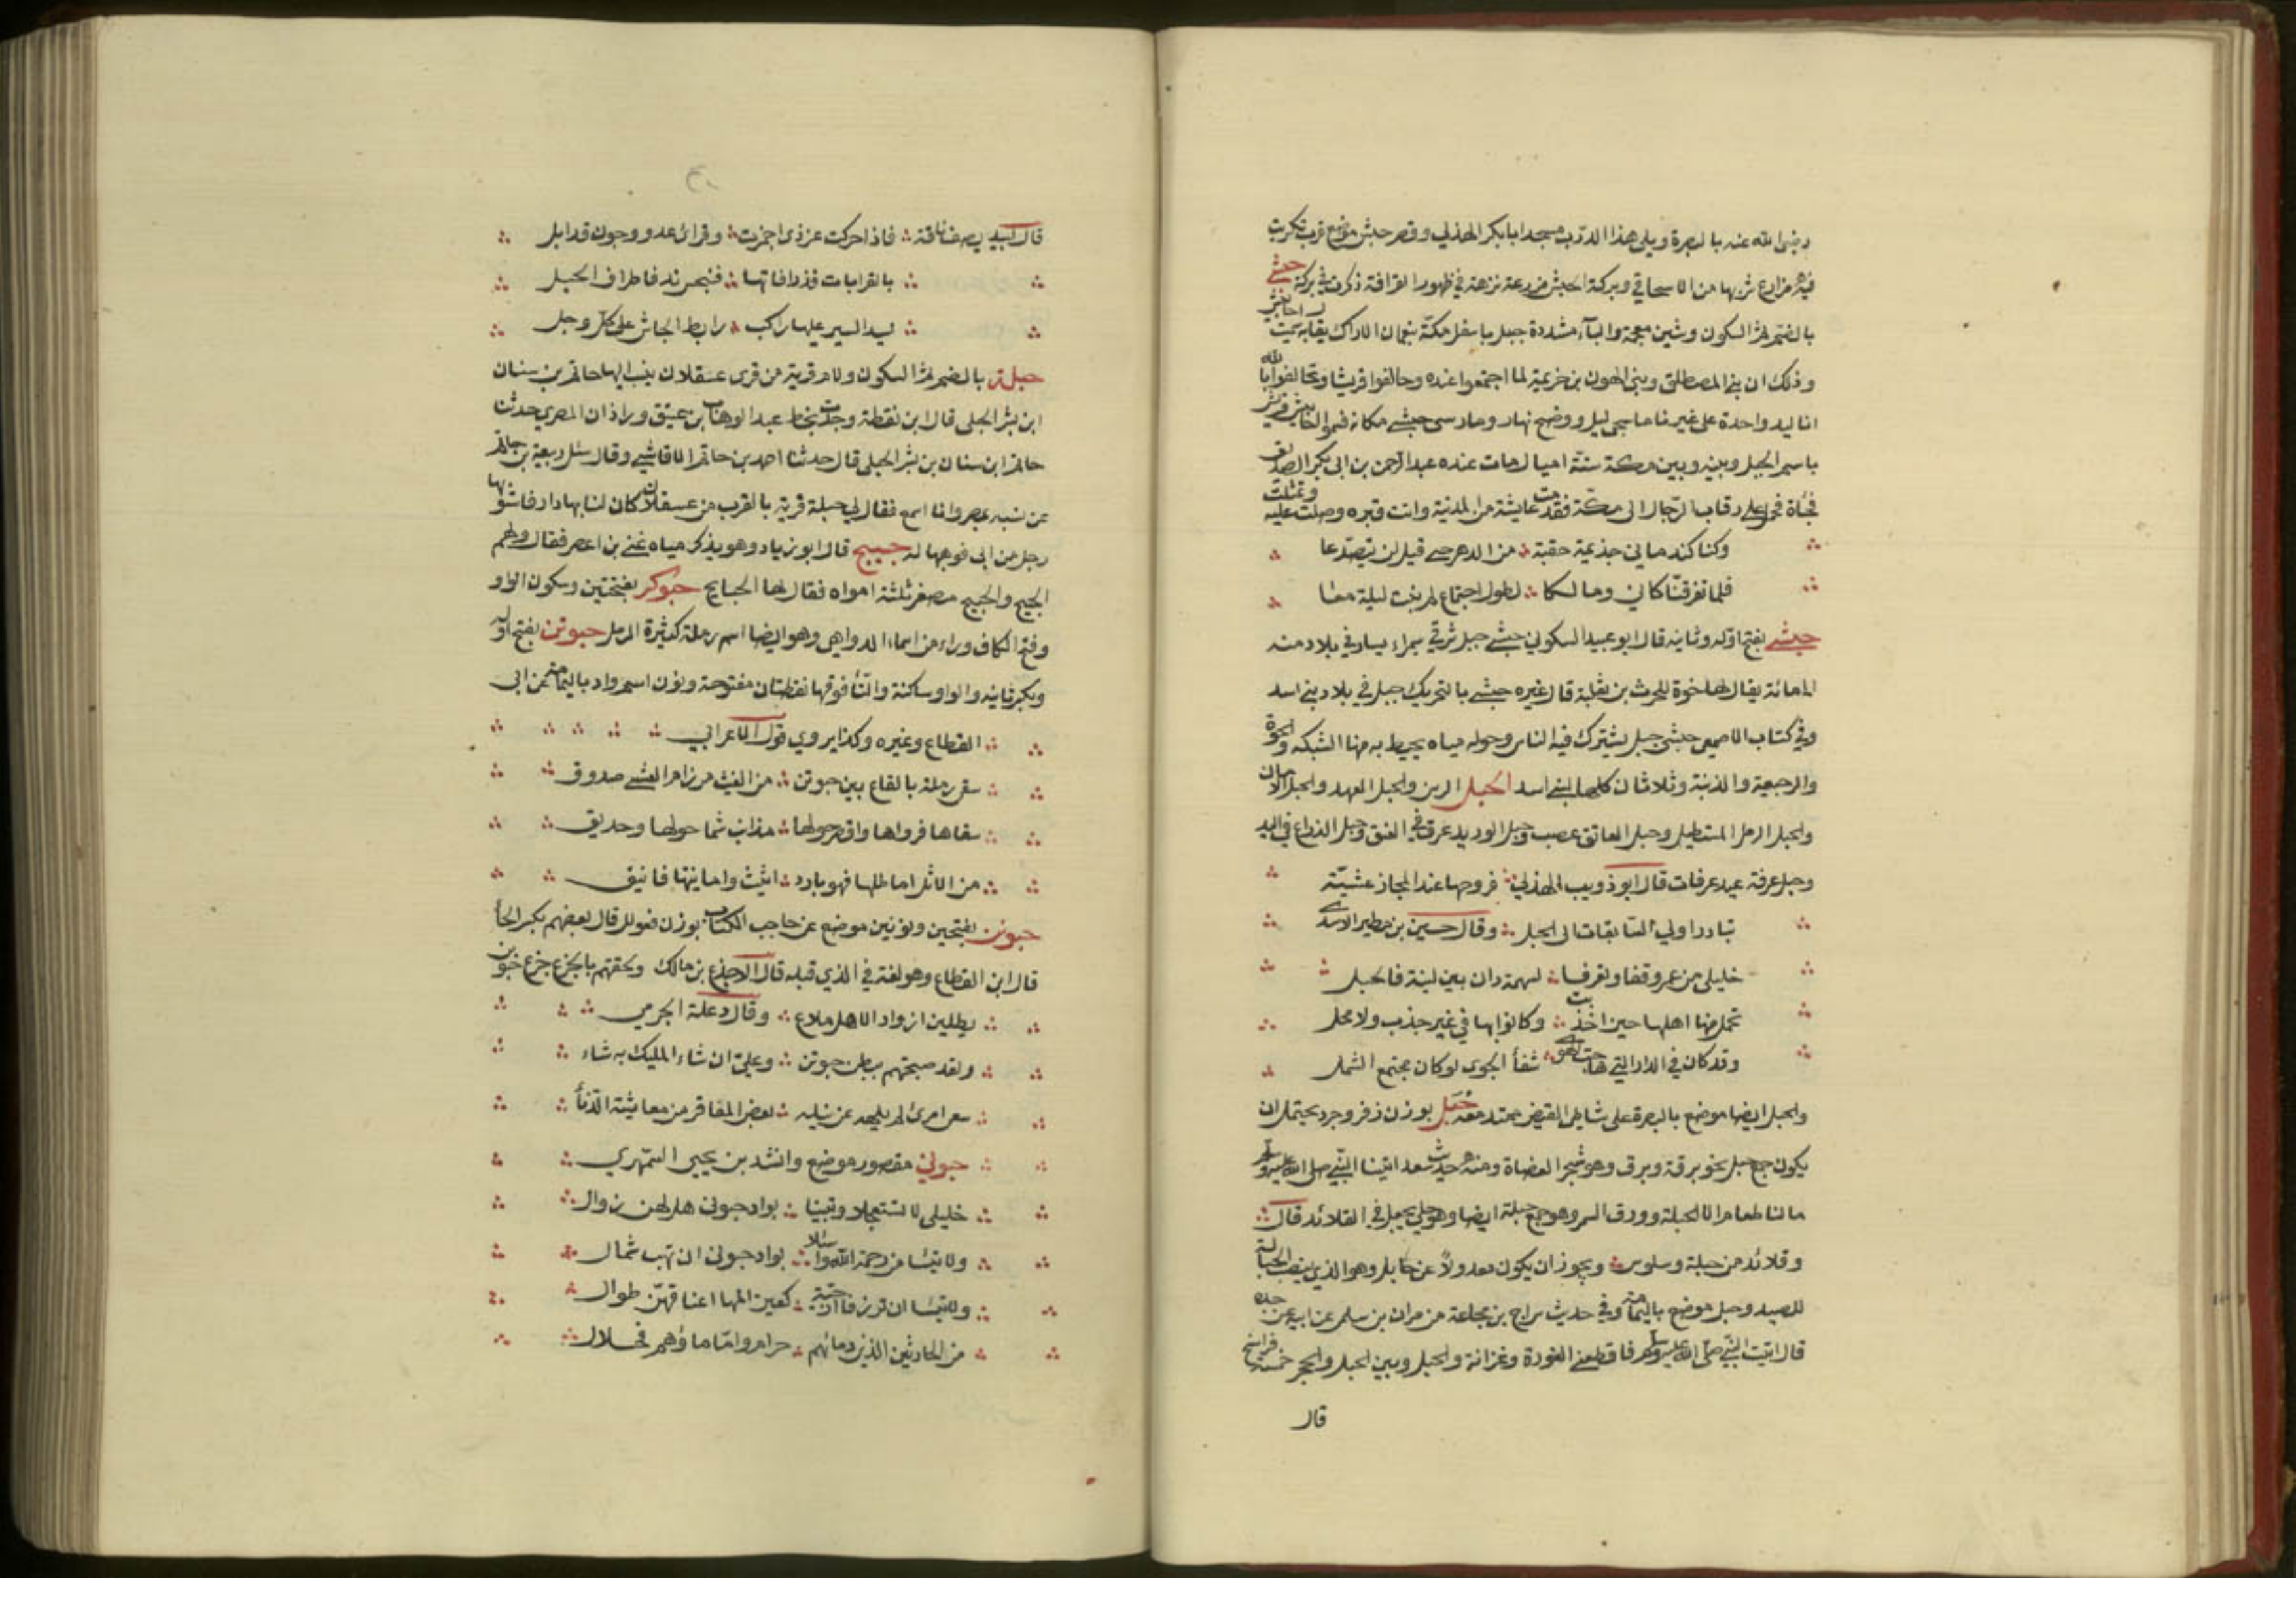 رضى الله عنه بالبصرة ويلى هذا الدرب مسجد ابا بكر الهذلي وقصر حبش موضع قرب تكريت
فيه مزارع شربها من الاسحاقي وبركة الحبش مزرعة نزهة في ظهور القرافة ذكرت في بركة حبشي
بالضم ثم السكون وشين معجمة واليآء مشددة جبل باسفل مكة بنعمان الاراك يقال به سميت احابيش
وذلك ان بني المصطلق وبني الهون بن خزيمة لما اجتمعوا عنده وحالفوا قريشا وتحالفوا بالله
انا ليد واحدة على غيرنا ما سجى ليل ووضح نهار وما رسى حبشي مكانه فسموا احابيش قريش
باسم الجبل وبينه وبين مكة ستة اميال مات عنده عبد الرحمن بن ابي بكر الصديق
فجأة فحمل على رقاب الرجال الى مكة فقدمت عايشة من المدينة واتت قبره وصلت عليه وتمثلت
وكنا كندماني جذيمة حقبة من الدهر حتى قيل لن يتصدعا
فلما تفرقنا كاني ومالكا لطول اجتماع لم نبت ليلة معا
حبشي بفتح اوله وثانيه قال ابو عبيد السكوني حبشي جبل شرقي سميراء يسار في بلاد منه
الماءة يقال لها خوة للحرث بن ثعلبة قال غيره حبشي بالتحريك جبل في بلاد بني اسد
وفي كتاب الاصمعي حبشى جبل يشترك فيه الناس وحوله مياه يحيط به منها الشبكة والخوة
والرجيعة والذنبة وثلاثان كلها لبني اسد الحبل الرسن والحبل العهد والحبل الامان
والحبل الرمل المستطيل وحبل العاتق عصب وحبل الوريد عرق في العنق وحبل الذراع في اليد
وحبل عرفة عند عرفات قال ابو ذويب الهذلي فروحها عند المجاز عشية
تبادر اولي السابقات الى الحبل وقال حسين بن مطير الاسدي
خليلى من عمرو قفا وتعرفا لسهمة دار بين لينة فالحبل
تحمل منها اهلها حين اجدبت وكانوا بها في غير جدب ولا محل
وقد كان في الدار التي هاجت الهوى شفأ الجوى لو كان مجتمع الشمل
والحبل ايضا موضع بالبصرة على شاطى الفيض ممتد معه حبل بوزن زفر وجرد يحتمل ان
يكون جمع حبل نحو برقة وبرق وهو شجر العضاة ومنه حديث سعد اتينا النبي صلى الله عليه وسلم
ما لنا طعام الا الحبلة وورق السمر وهو جمع حبلة ايضا وهو حلي يجعل في القلائد قال
وقلائد من حبلة وسلوس ويجوز ان يكون معدولاً عن حابل وهو الذي ينصب الحبالة
للصيد وحبل موضع باليمامة وفي حديث سراج بن مجاعة بن مرارة بن سلمى عن ابيه عن جده
قال اتيت النبي صلى الله عليه وسلم فاقطعني الغورة وغرابة والحبل وبين الحبل والحجر خمسة فراسخ
قال
قال لبيد يصف ناقة فاذا حركت غرزي اجمزت وقرائي عدو وجون قد ابل
بالغرابات فزرافاتها فبخنزير فاطراف الحبل
ليد السير عليها راكب رابط الجاش على كل وجل
حبلة بالضم ثم السكون ولام قرية من قرى عسقلان ينسب اليها حاتم بن سنان
ابن بشر الحبلى قال ابن نقطة وجدت بخط عبد الوهاب بن عتيق وراذان المصري حدثنا
حاتم ابن سنان بن بشر الحبلى قال حدثنا احمد بن حاتم الاقاشي وقال سئل ربيعة بن حاتم
عن نسبه بمصر وانا اسمع فقال لي حبلة قرية بالقرب من عسقلان كان لنا بها دار فاستوهبها
رجل من ابي فوهبها له حبيج قال ابو زياد وهو يذكر مياه غني بن اعصر فقال ولهم
الحبج والحبيج مصغر ثلثة امواه فقال لها الحبايج حبوكر بفتحتين وسكون الواو
وفتح الكاف وراء من اسماء الدواهي وهو ايضا اسم رملة كثيرة الرمل حبوتن بفتح اوله
وبكسر ثانيه والواو ساكنة والتأ فوقها نقطتان مفتوحة ونون اسم واد باليمامة عن ابي
القطاع وغيره وكذا يروي قول الاعرابي
سقى رملة بالقاع بين حبوتن من الغيث مرزام العشي صدوق
سقاها فرواها واقصر حولها مذانب شما حولها وحديق
من الاثل اما ظلها فهو بارد اثيث واما نبتها فانيق
حبونن بفتحتين ونونين موضع عن صاحب الكتاب بوزن فعولل قال بعضهم بكسر الحأ
قال ابن القطاع وهو لغة في الذي قبله قال الاجدع بن مالك ولحقتهم بالجزع جزع حبونن
يطلبن ازواد الاهل ملاع وقال دعلة الجرمي
ولقد صبحتهم ببطن حبوتن وعلي ان شاء المليك به شاء
سعى امرئ لم يلهه عن نيله بعض المفاقر من معايشة الدنأ
حبونى مقصور موضع وانشد بن يحيى السمهري
خليلى لا تستعجلا وتبينا بواد حبونى هل لهن زوال
ولا تيئسا من رحمة الله واسئلا بواد حبونى ان تهب شمال
ولا تيئسا ان ترزقا ارحبية كعين المها اعناقهن طوال
من الحارثيين الذين دمائهم حرام واما ما وهم فحلال